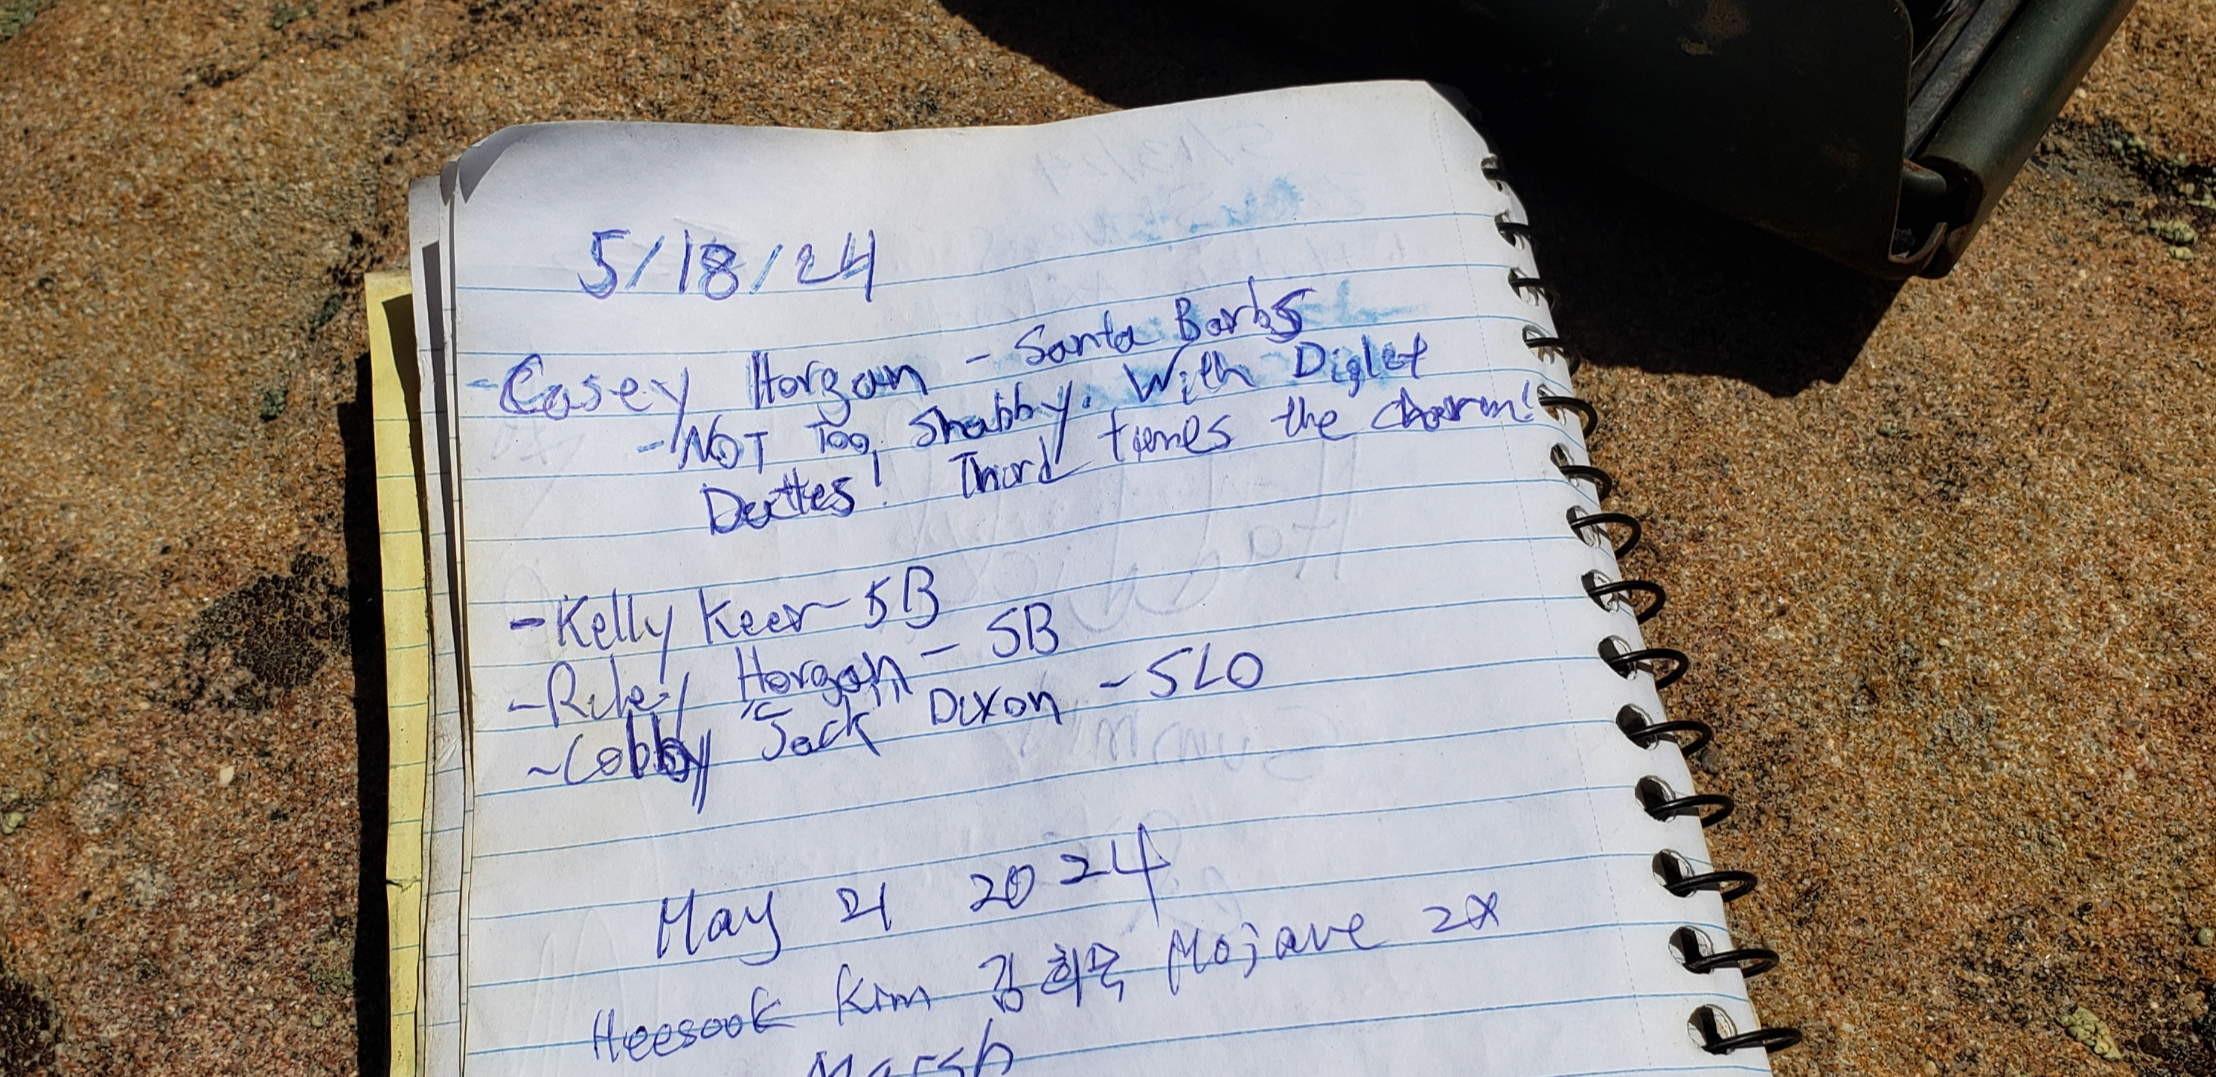 5/18/24
-Casey Horgan - Santa Barbs
-NOT Too Shabby. With Diglet
Duttes! Third times the charm!
-Kelly Keer-SB
-Riley Horgan - SB
-Cobby "Jack" Dixon -SLO
May 21 2024
Heesook Kim 김희숙 Mojave 2x
Marsh